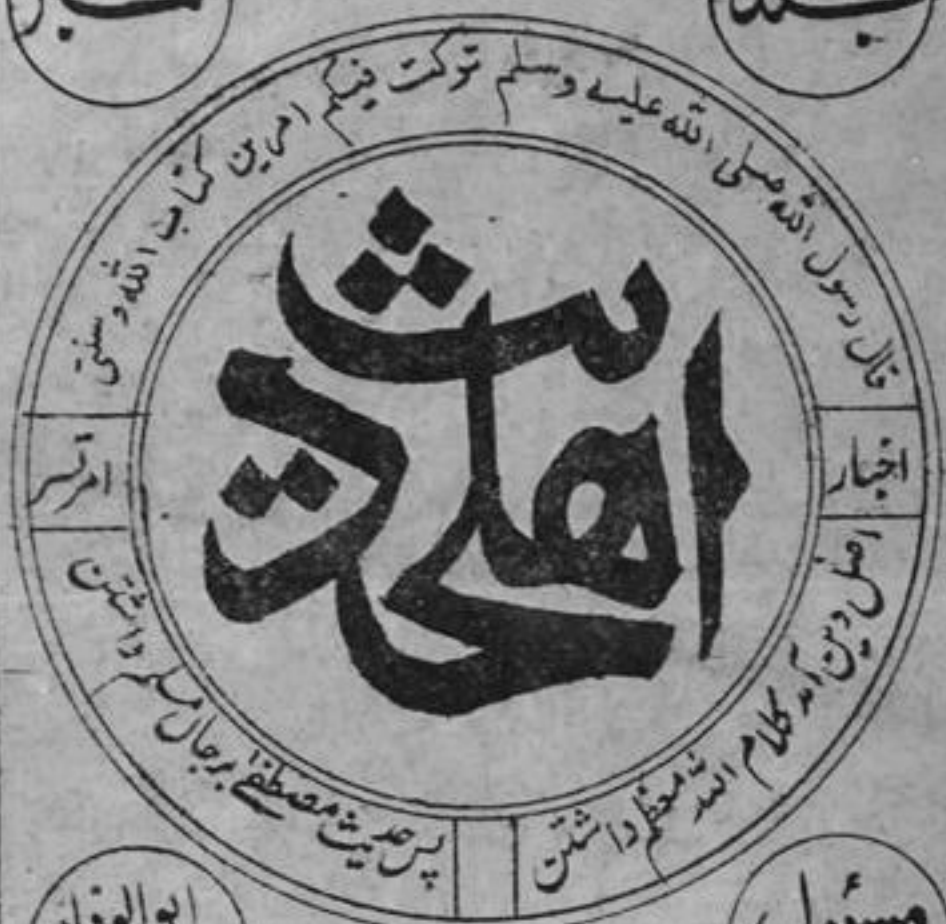 قال رسول الله صلى الله عليه وسلم تركت فيكم امرين كتاب الله و سنتى
اهلحدیث
اخبار
امرتسر
اصل دین آمد کلام الله معظم داشتن
پس حدیث مصطفےٰ برجان مسلم داشتن
ابوالوفاء